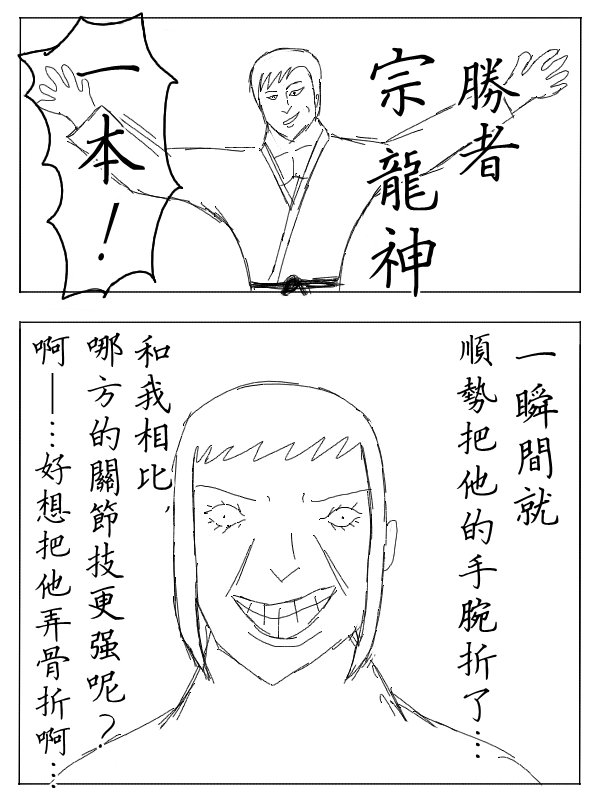 勝者
宗龍神
一本！
一瞬間就
順勢把他的手腕折了…
和我相比，
哪方的關節技更强呢？
啊—…好想把他弄骨折啊…